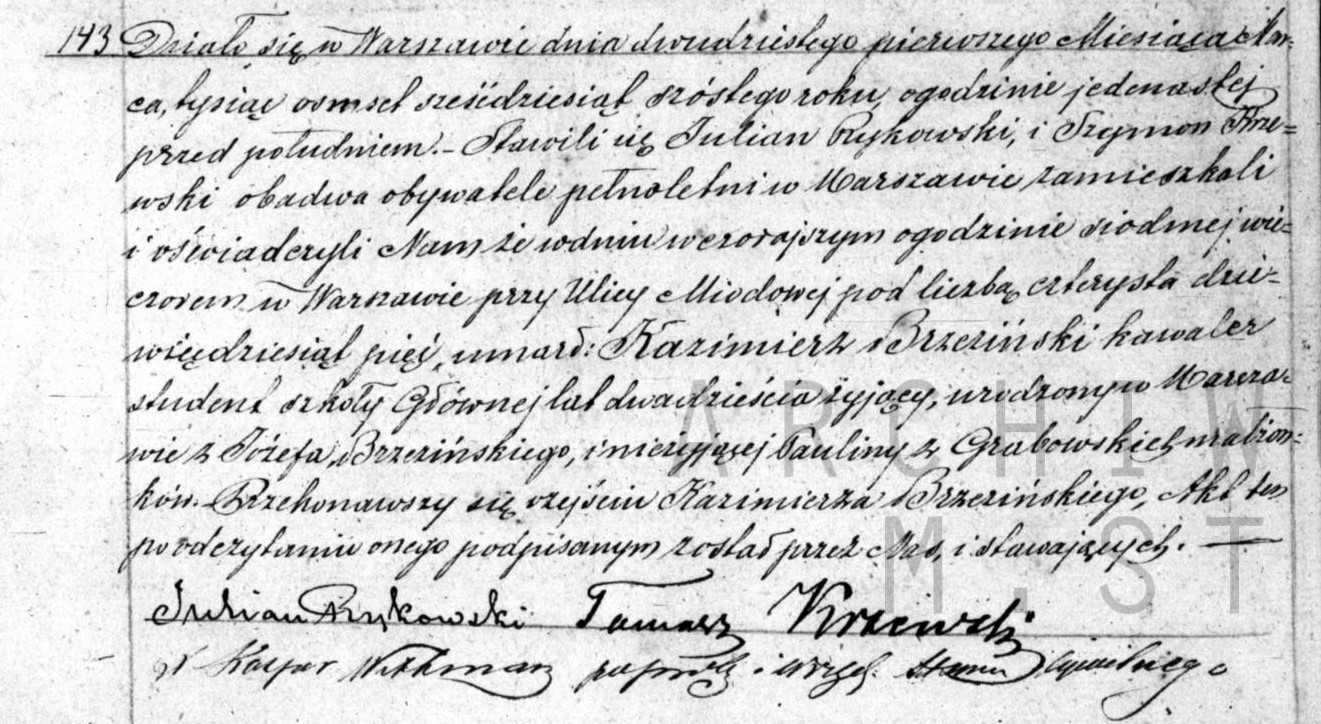 143 Działo się w Warszawie dnia dwudziestego pierwszego Miesiąca Mar-
ca, tysiąc osmset sześćdziesiąt szóstego roku, ogodzinie jedenastej
przed południem. – Stawili się Julian Rzykowski, i Szymon Krze=
wski obadwa obywatele pełnoletni w Warszawie zamieszkali
i oświadczyli Nam że wdniu wczorajszym ogodzinie siodmej wie=
czorem w Warszawie przy Ulicy Miodowej pod liczbą czterysta dzie-
więdziesiąt pięć, umarł: Kazimierz Brzeziński kawaler
student szkoły Głównej lat dwadzieścia żyjący, urodzony w Warsza-
wie z Józefa Brzezińskiego, i nieżyjącej Pauliny z Grabowskich małżon=
ków. – Przekonawszy się o zejściu Kazimierza Brzezińskiego, Akt ten
po odczytaniu onego podpisanym został przez Nas, i stawających. —
Julian Rzykowski Tomasz
X Kacper
ARCHIW
M.ST